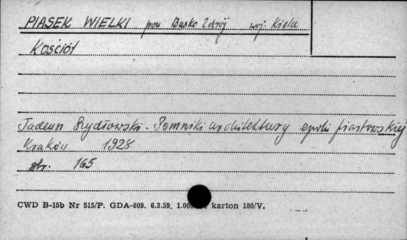 PIASEK WIELKI pow Busko Zdrój woj. Kielce
Kościół
Tadeusz Szydłowski - Pomniki architektury epoki piastowskiej
Kraków 1928
str. 165
CWD B-15b Nr 515/P. GDA-809. 6.3.59, karton 180/V.